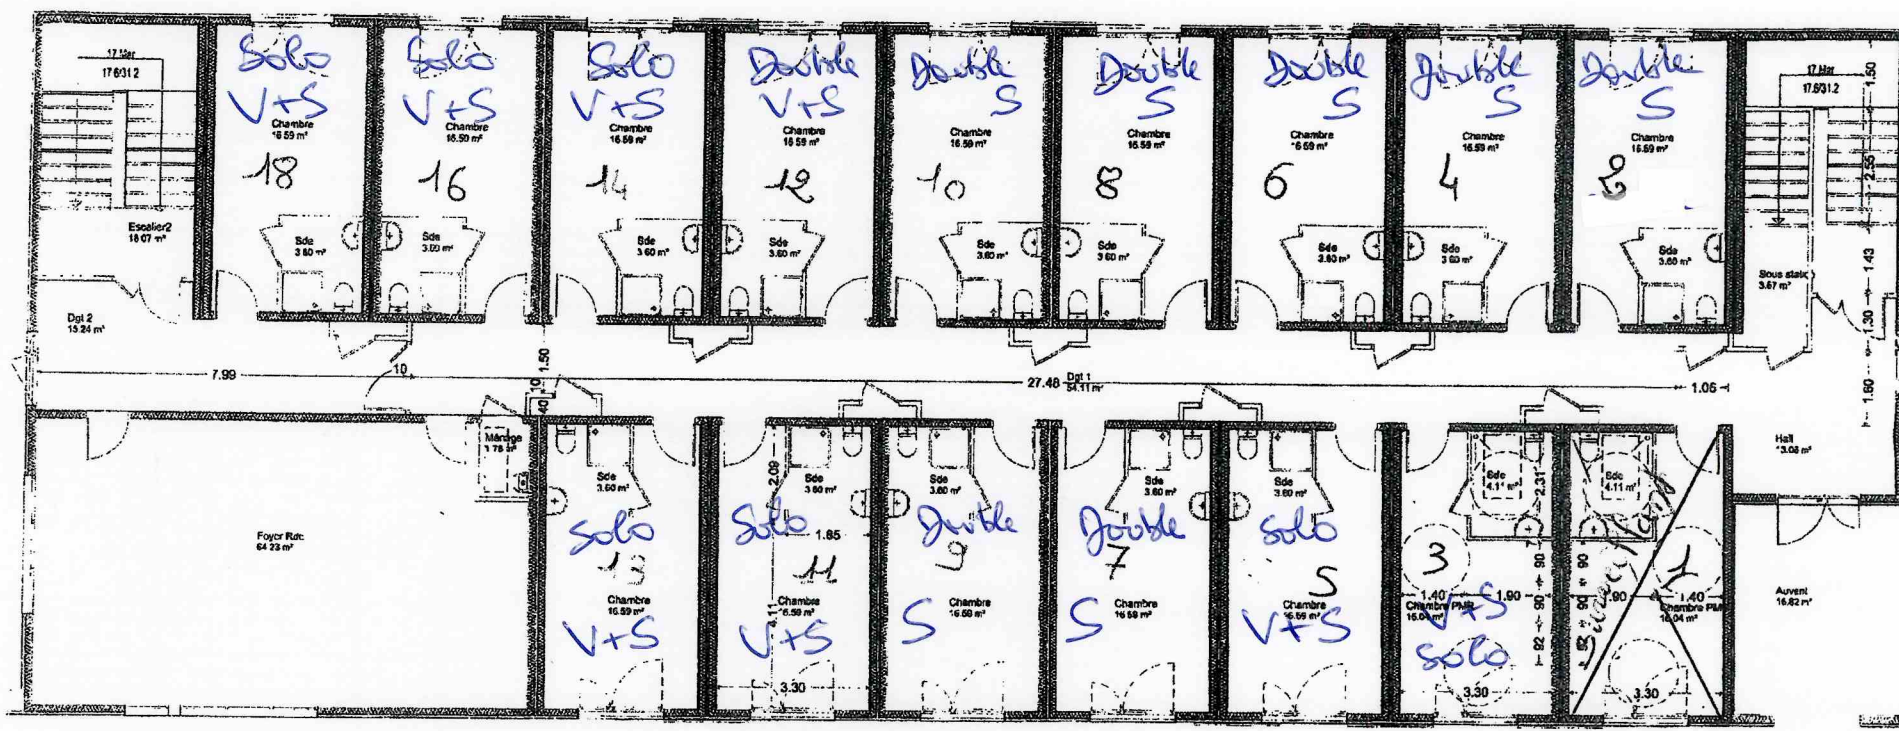 17 Mar
17.6/31.2
Escalier2
18.07 m²
Dgt 2
15.24 m²
Solo
V+S
Chambre
16.59 m²
18
Sde
3.60 m²
Solo
V+S
Chambre
16.59 m²
16
Sde
3.60 m²
Solo
V+S
Chambre
16.59 m²
14
Sde
3.60 m²
Double
V+S
Chambre
16.59 m²
12
Sde
3.60 m²
Double
S
Chambre
16.59 m²
10
Sde
3.60 m²
Double
S
Chambre
16.59 m²
8
Sde
3.60 m²
Double
S
Chambre
16.59 m²
6
Sde
3.60 m²
Double
S
Chambre
16.59 m²
4
Sde
3.60 m²
Double
S
Chambre
16.59 m²
2
Sde
3.60 m²
17 Mar
17.6/31.2
1.50
2.55
1.43
1.30
1.60
Sous station
3.67 m²
7.99
10
10
1.50
40
27.48
Dgt 1
54.11 m²
1.05
Hall
Foyer Rdc
64.23 m²
Ménage
1.76 m²
Sde
3.60 m²
Solo
13
Chambre
16.59 m²
V+S
2.09
Sde
3.60 m²
Solo
1.85
11
4.11
Chambre
16.59 m²
V+S
3.30
Sde
3.60 m²
Double
9
Chambre
16.59 m²
S
Sde
3.60 m²
Double
7
Chambre
16.59 m²
S
Sde
3.60 m²
Solo
5
Chambre
16.59 m²
V+S
Sde
4.11 m²
2.31
3
90
1.40
1.90
90
Chambre PMR
16.04 m²
V+S
Solo
92
3.30
Sde
4.11 m²
1
90
1.90
1.40
90
Chambre PMR
16.04 m²
92
3.30
Auvent
16.82 m²